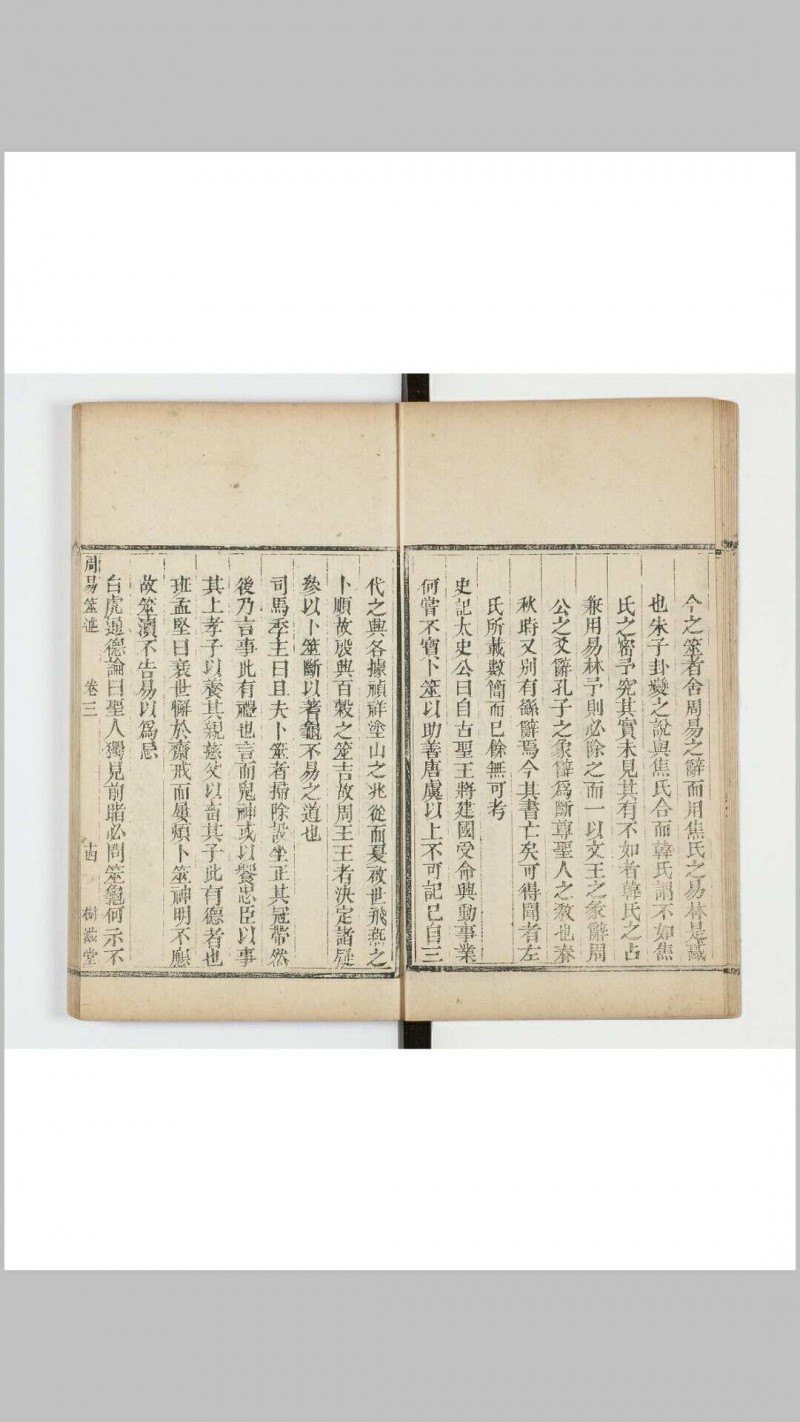 今之筮者舍周易之辭而用焦氏之易林是惑
也朱子卦變之說與焦氏合而韓氏謂不如焦
氏之密予究其實未見其有不如者韓氏之占
兼用易林予則必除之而一以文王之彖辭周
公之爻辭孔子之象辭爲斷尊聖人之教也春
秋時又別有繇辭焉今其書亡矣可得聞者左
氏所載數簡而已餘無可考
史記太史公曰自古聖王將建國受命興動事業
何嘗不寶卜筮以助善唐虞以上不可記已自三
代之興各據禎祥塗山之兆從而夏啟世飛燕之
卜順故殷興百穀之筮吉故周王王者決定諸疑
參以卜筮斷以蓍龜不易之道也
司馬季主曰且夫卜筮者掃除設坐正其冠帶然
後乃言事此有禮也言而鬼神或以饗忠臣以事
其上孝子以養其親慈父以畜其子此有德者也
班孟堅曰衰世懈於齋戒而屢煩卜筮神明不應
故筮瀆不告易以爲忌
白虎通德論曰聖人獨見前睹必問筮龜何示不
周易筮述 卷三 十四 樹滋堂